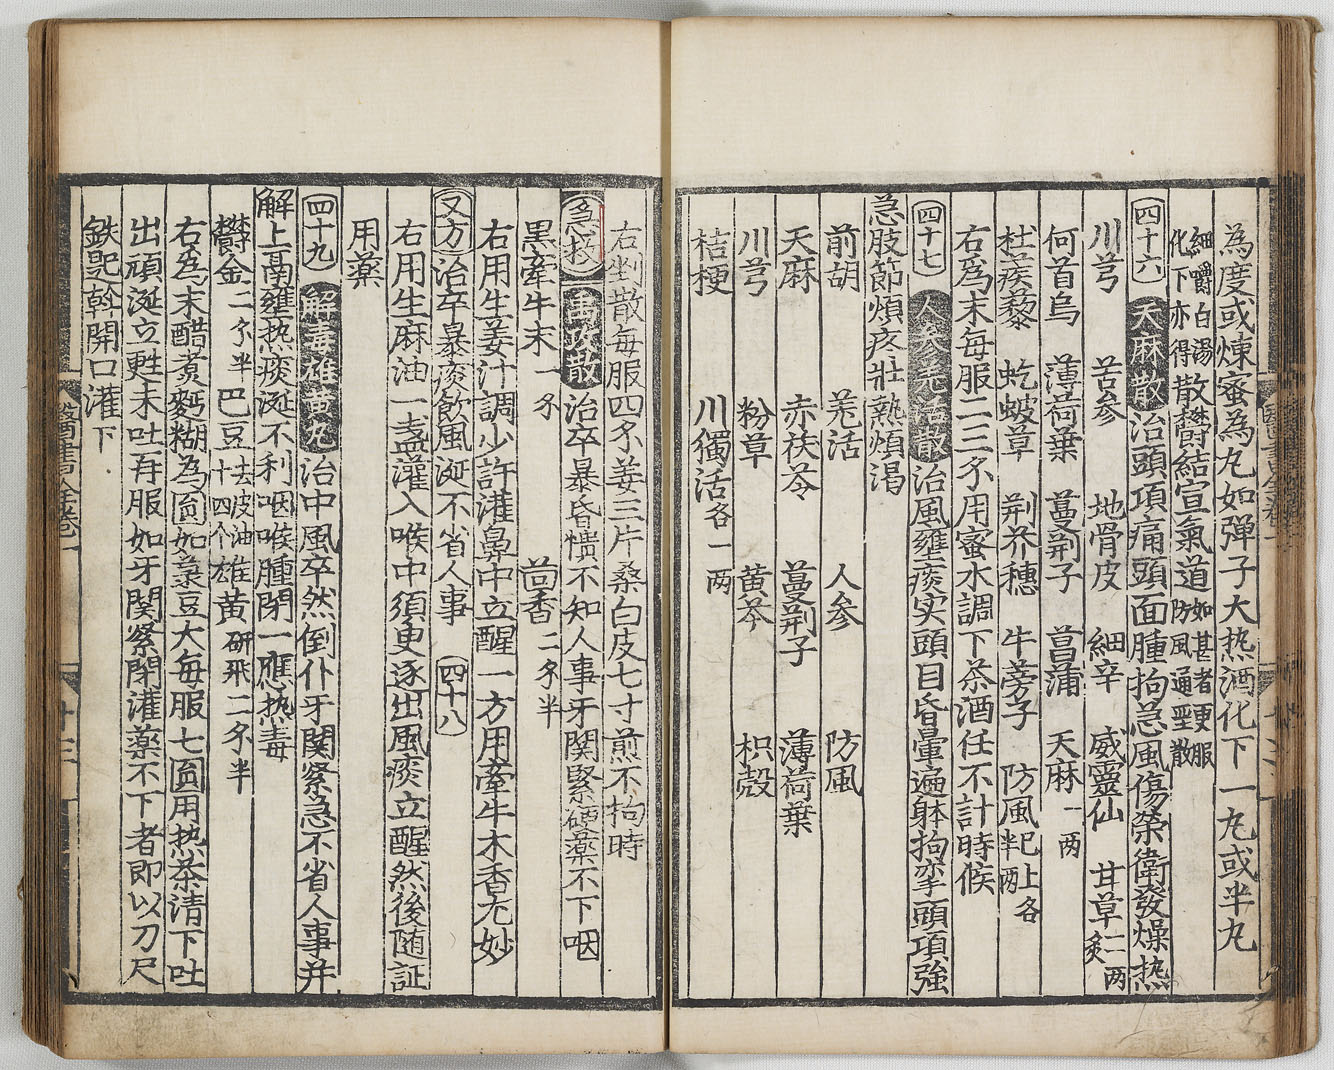 為度或煉蜜為丸如弹子大热酒化下一丸或半丸
細嚼白湯化下亦得散欝結宣氣道如甚者更服防風通聖散
四十六 天麻散 治頭項痛頭面腫拘急風傷榮衛發燥热
川芎 苦参 地骨皮 細辛 威靈仙 甘草二两炙
何首烏 薄荷葉 蔓荆子 菖蒲 天麻一两
杜蒺藜 虼蚾草 荆芥穗 牛蒡子 防風半两 已上各
右為末每服二三钱用蜜水調下茶酒任不計時候
四十七 人参羌活散 治風壅痰实頭目昏暈遍躰拘挛頭項強
急肢節煩疼壮熱煩渴
前胡 羌活 人参 防風
天麻 赤茯苓 蔓荆子 薄荷葉
川芎 粉草 黄芩 枳殼
桔梗 川獨活各一两
右剉散每服四钱姜三片桑白皮七寸煎不拘時
急救 禹政散 治卒暴昏愦不知人事牙関緊硬薬不下咽
黑牽牛末一钱 茴香二钱半
右用生姜汁調少許灌鼻中立醒一方用牽牛木香尤妙
又方 治卒暴痰飲風涎不省人事 四十八
右用生麻油一盏灌入喉中須臾逐出風痰立醒然後随証
用薬
四十九 解毒雄黄丸 治中風卒然倒仆牙関緊急不省人事并
解上鬲壅热痰涎不利咽喉腫閉一應热毒
欝金二钱半 巴豆去皮油十四个 雄黄研飛二钱半
右為末醋煮麪糊為圓如菉豆大每服七圓用热茶清下吐
出頑涎立甦未吐再服如牙関緊閉灌薬不下者即以刀尺
鉄匙斡開口灌下